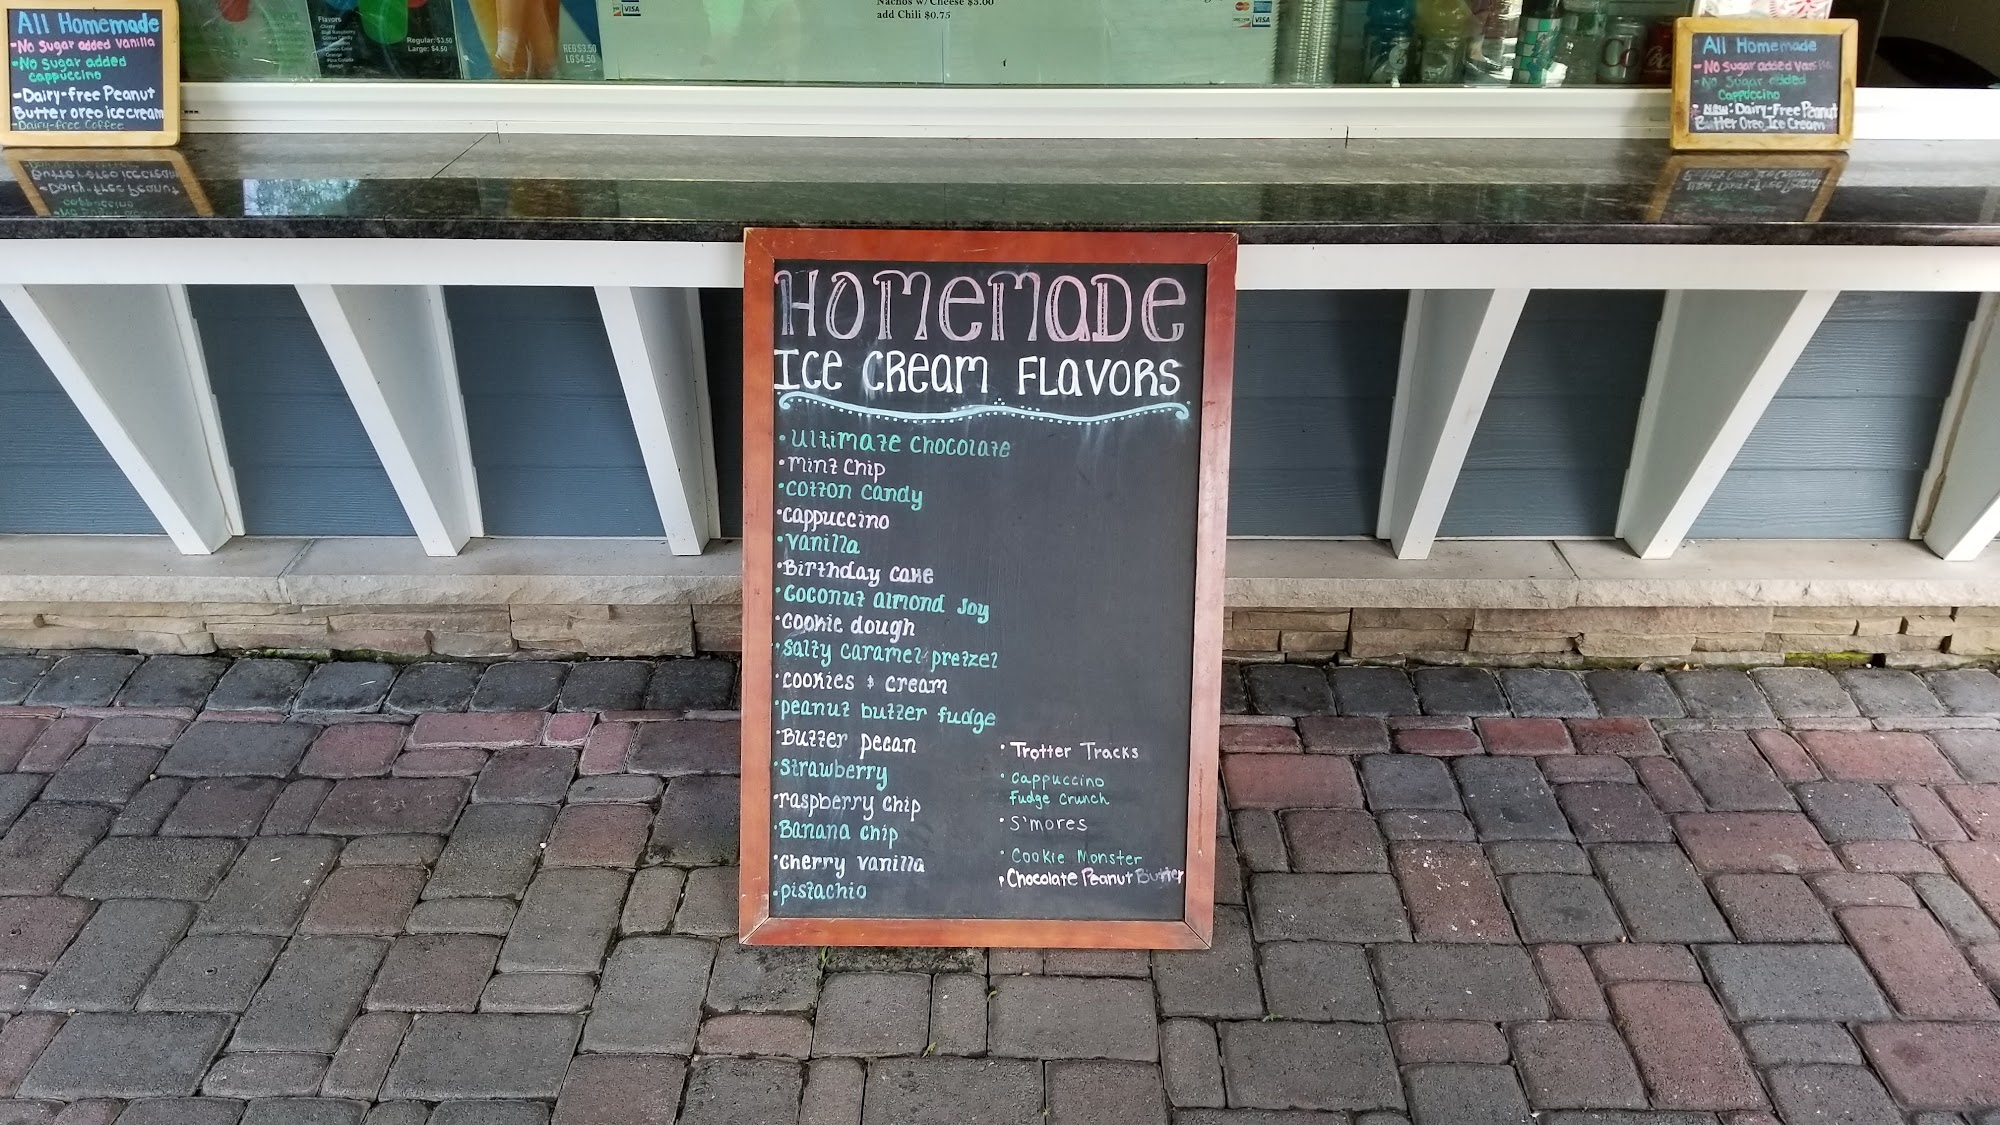 All Homemade
-No Sugar added vanilla
-No Sugar added
cappuccino
-Dairy-free Peanut
Butter oreo ice cream
-Dairy-free Coffee
Flavors
Regular: $3.50
Large: $4.50
REG $3.50
LG $4.50
VISA
Nachos w/Cheese $3.00
add Chili $0.75
VISA
All Homemade
- No Sugar added Vanilla
- No Sugar added
Cappuccino
- New: Dairy-Free Peanut
Butter Oreo Ice Cream
Homemade
Ice Cream Flavors
• Ultimate Chocolate
• Mint Chip
• Cotton Candy
• Cappuccino
• Vanilla
• Birthday Cake
• Coconut Almond Joy
• Cookie dough
• Salty Caramel pretzel
• Cookies & Cream
• peanut butter fudge
• Butter pecan
• Strawberry
• raspberry chip
• Banana chip
• Cherry vanilla
• pistachio
• Trotter Tracks
• Cappuccino
Fudge Crunch
• S'mores
• Cookie Monster
• Chocolate Peanut Butter